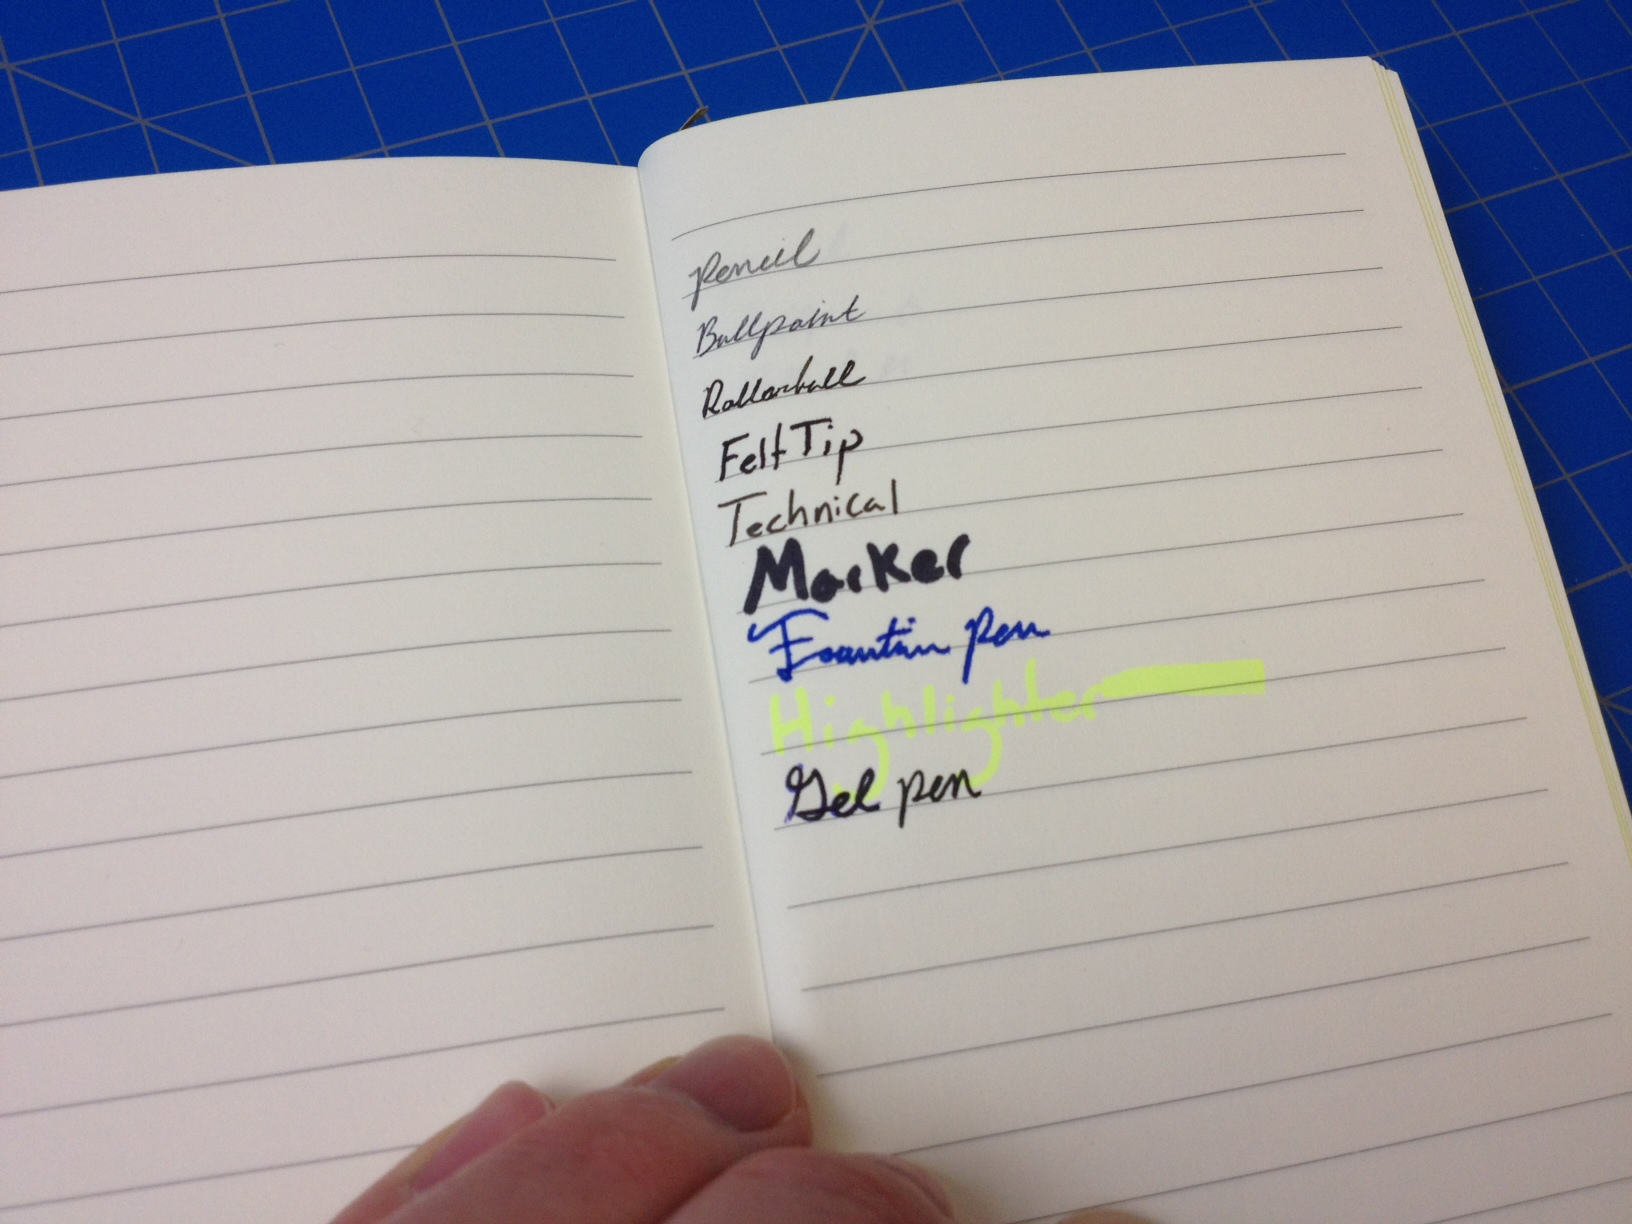 Pencil
Ballpoint
Rollerball
Felt Tip
Technical
Marker
Fountain pen
Highlighter
Gel pen